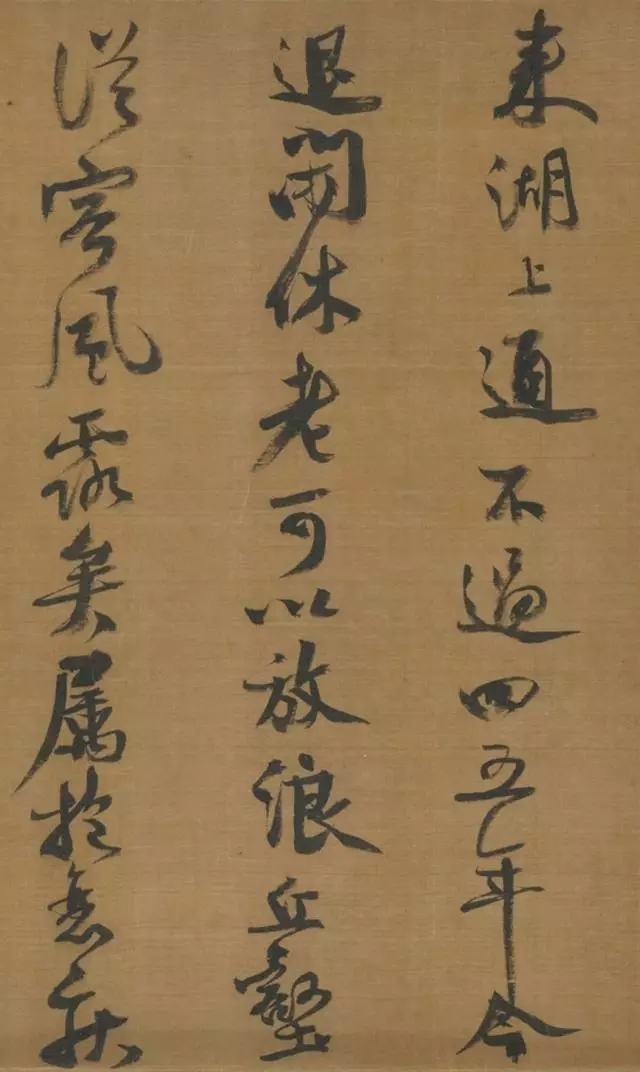 東湖上通不過四五年今
退閒休老可以放浪丘壑
從容風露矣属於